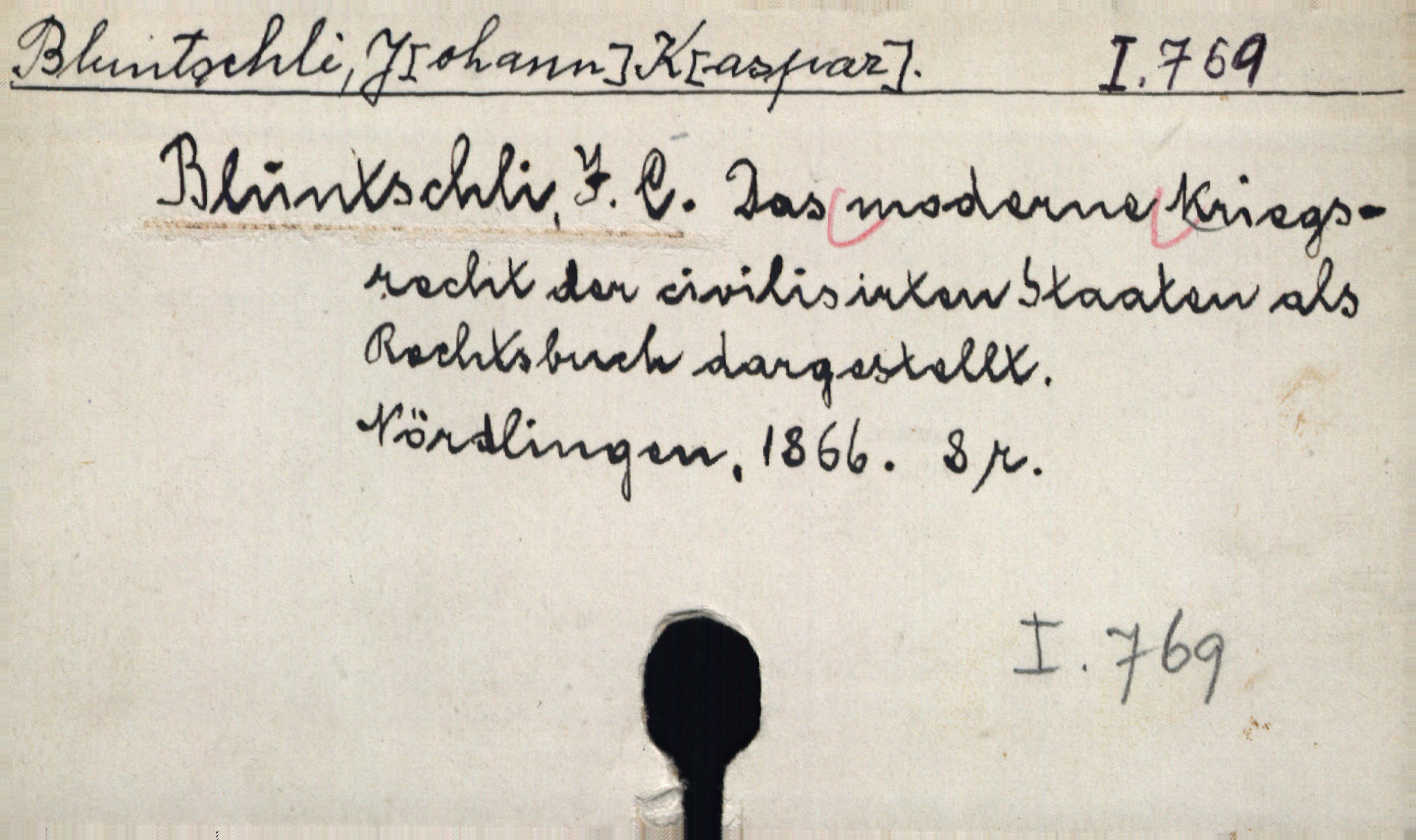 Bluntschli, J[ohann] K[aspar]. I. 769
Bluntschli, J. C. Das moderne Kriegs-
recht der civilisirten Staaten als
Rechtsbuch dargestellt.
Nördlingen, 1866. 8 r.
I. 769